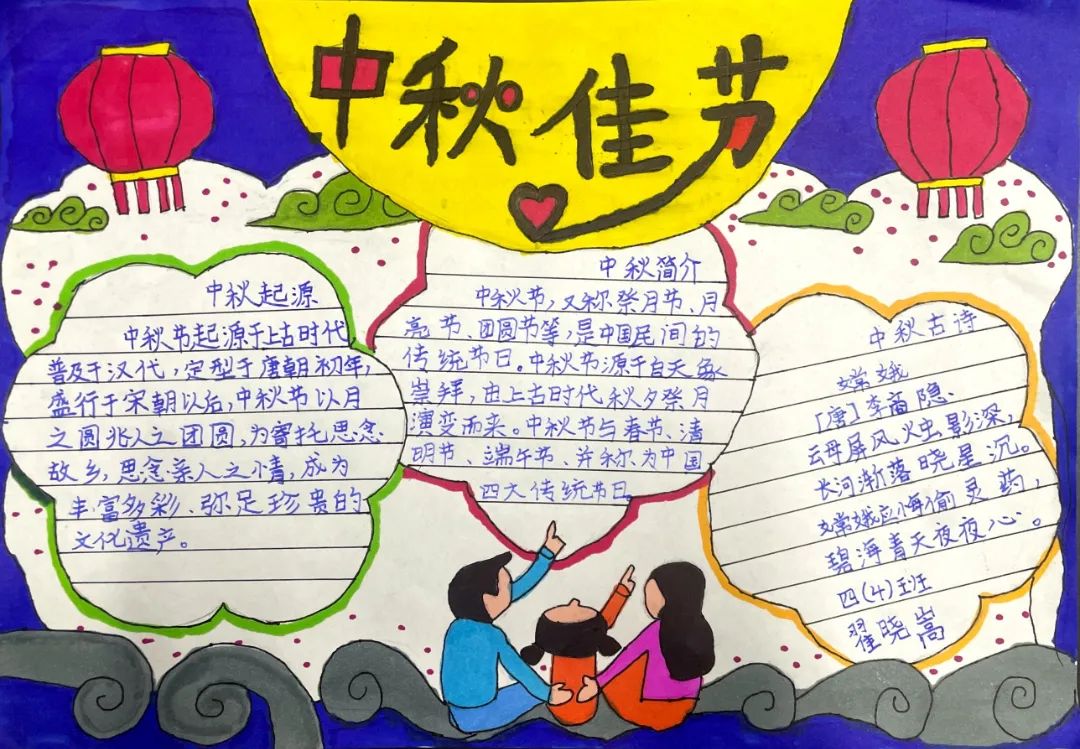 中秋佳节
中秋起源
中秋节起源于上古时代,
普及于汉代,定型于唐朝初年,
盛行于宋朝以后,中秋节以月
之圆兆人之团圆,为寄托思念
故乡,思念亲人之情,成为
丰富多彩、弥足珍贵的
文化遗产。
中秋简介
中秋节,又称祭月节、月
亮节、团圆节等,是中国民间的
传统节日。中秋节源于自天象
崇拜,由上古时代秋夕祭月
演变而来。中秋节与春节、清
明节、端午节、并称为中国
四大传统节日。
中秋古诗
嫦娥
「唐」李商隐.
云母屏风烛影深,
长河渐落晓星沉。
嫦娥应悔偷灵药,
碧海青天夜夜心。
四(4)班
翟晓嵩